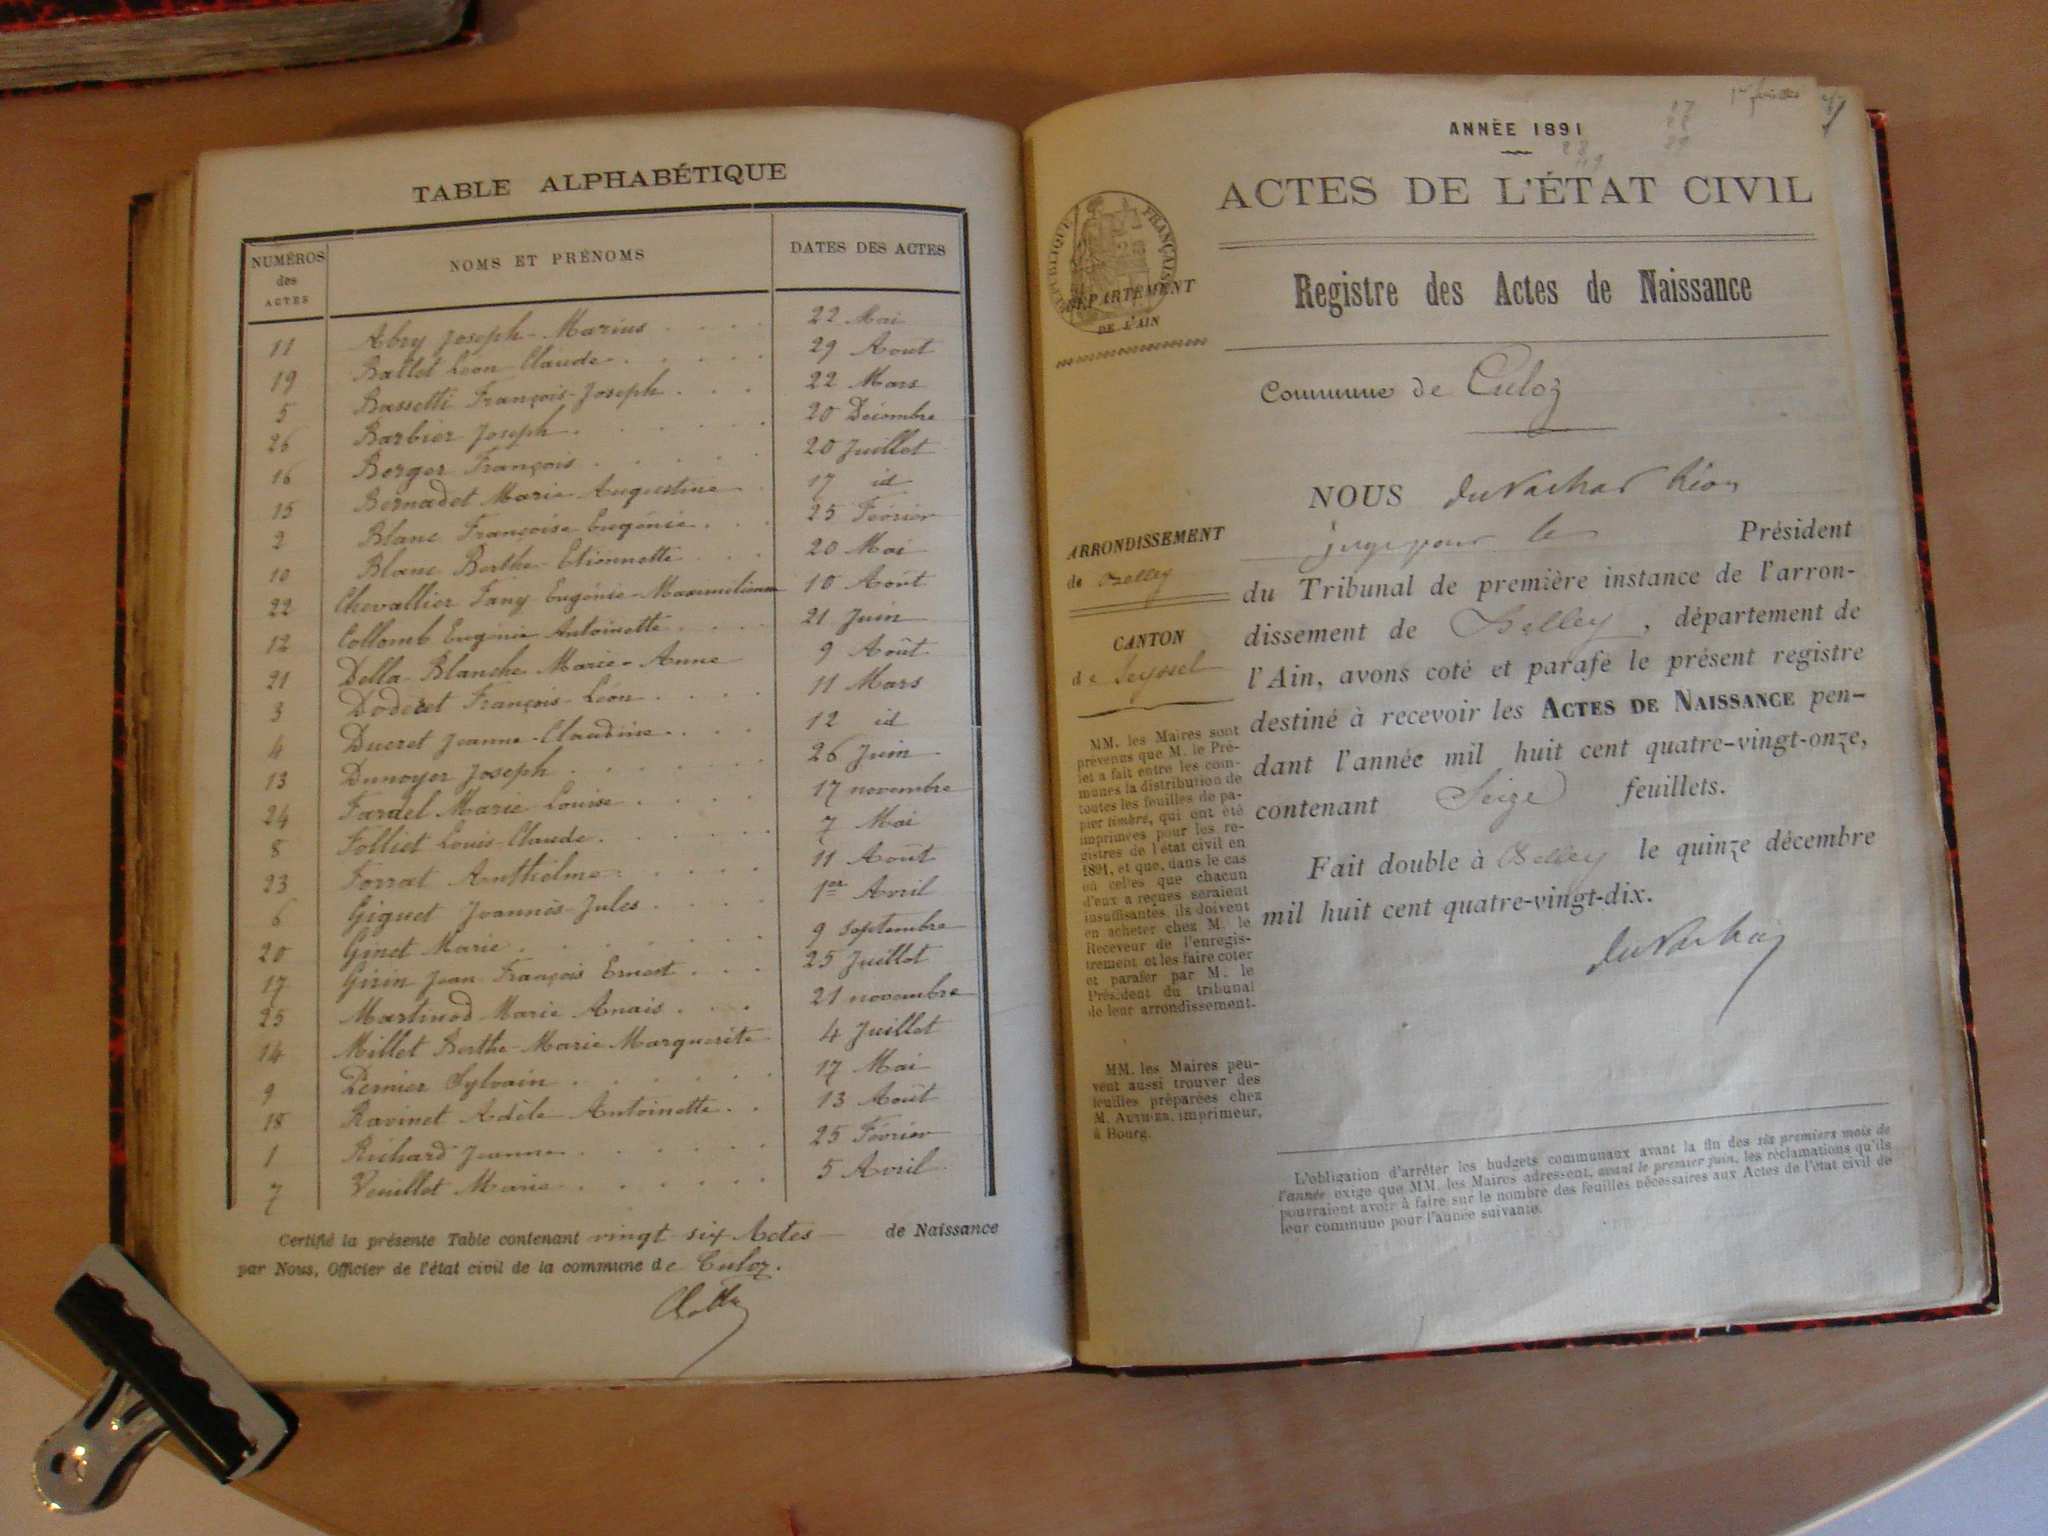 TABLE ALPHABÉTIQUE
NUMÉROS des ACTES
NOMS ET PRÉNOMS
DATES DES ACTES
11 Abry Joseph-Marius 22 Mai
19 Ballet Léon Claude 29 Aout
5 Bassetti François-Joseph 22 Mars
26 Barbier Joseph 20 Décembre
16 Berger François 20 Juillet
15 Bernadet Marie Augustine 17 id
2 Blanc Françoise Eugénie 25 Février
10 Blanc Berthe-Etiennette 20 Mai
22 Chevallier Fany Eugénie-Maximilienne 10 Août
12 Collomb Eugénie Antoinette 21 Juin
21 Della-Blanche Marie-Anne 9 Août
3 Doderet François-Léon 11 Mars
4 Ducret Jeanne-Claudine 12 id
13 Dunoyer Joseph 26 Juin
24 Farael Marie Louise 17 novembre
8 Folliet Louis-Claude 7 Mai
23 Forrat Anthelme 11 Août
6 Giguet Joannès-Jules 1er Avril
20 Ginet Marie 9 septembre
17 Girin Jean François Ernest 25 Juillet
25 Martinod Marie Anais 21 novembre
14 Millet Berthe-Marie Marguerite 4 Juillet
9 Pernier Sylvain 17 Mai
18 Ravinet Adèle Antoinette 13 Août
1 Richard Jeanne 25 Février
7 Veuillet Marie 5 Avril
Certifié la présente Table contenant vingt six Actes de Naissance
par Nous, Officier de l'état civil de la commune de Culoz.
ANNÉE 1891
ACTES DE L'ÉTAT CIVIL
RÉPUBLIQUE FRANÇAISE
DÉPARTEMENT
DE L'AIN
Registre des Actes de Naissance
Commune de Culoz
ARRONDISSEMENT
de Belley
CANTON
de Seyssel
MM. les Maires sont
prévenus que M. le Pré-
fet a fait entre les com-
munes la distribution de
toutes les feuilles de pa-
pier timbré, qui ont été
imprimées pour les re-
gistres de l'état civil en
1891, et que, dans le cas
où celles que chacun
d'eux a reçues seraient
insuffisantes, ils doivent
en acheter chez M. le
Receveur de l'enregis-
trement et les faire coter
et parafer par M. le
Président du tribunal
de leur arrondissement.
MM. les Maires peu-
vent aussi trouver des
feuilles préparées chez
M. AUTHIER, imprimeur,
à Bourg.
NOUS
juge pour le Président
du Tribunal de première instance de l'arron-
dissement de Belley, département de
l'Ain, avons coté et parafé le présent registre
destiné à recevoir les ACTES DE NAISSANCE pen-
dant l'année mil huit cent quatre-vingt-onze,
contenant Seize feuillets.
Fait double à Belley le quinze décembre
mil huit cent quatre-vingt-dix.
L'obligation d'arrêter les budgets communaux avant la fin des six premiers mois de
l'année exige que MM. les Maires adressent, avant le premier juin, les réclamations qu'ils
pourraient avoir à faire sur le nombre des feuilles nécessaires aux Actes de l'état civil de
leur commune pour l'année suivante.